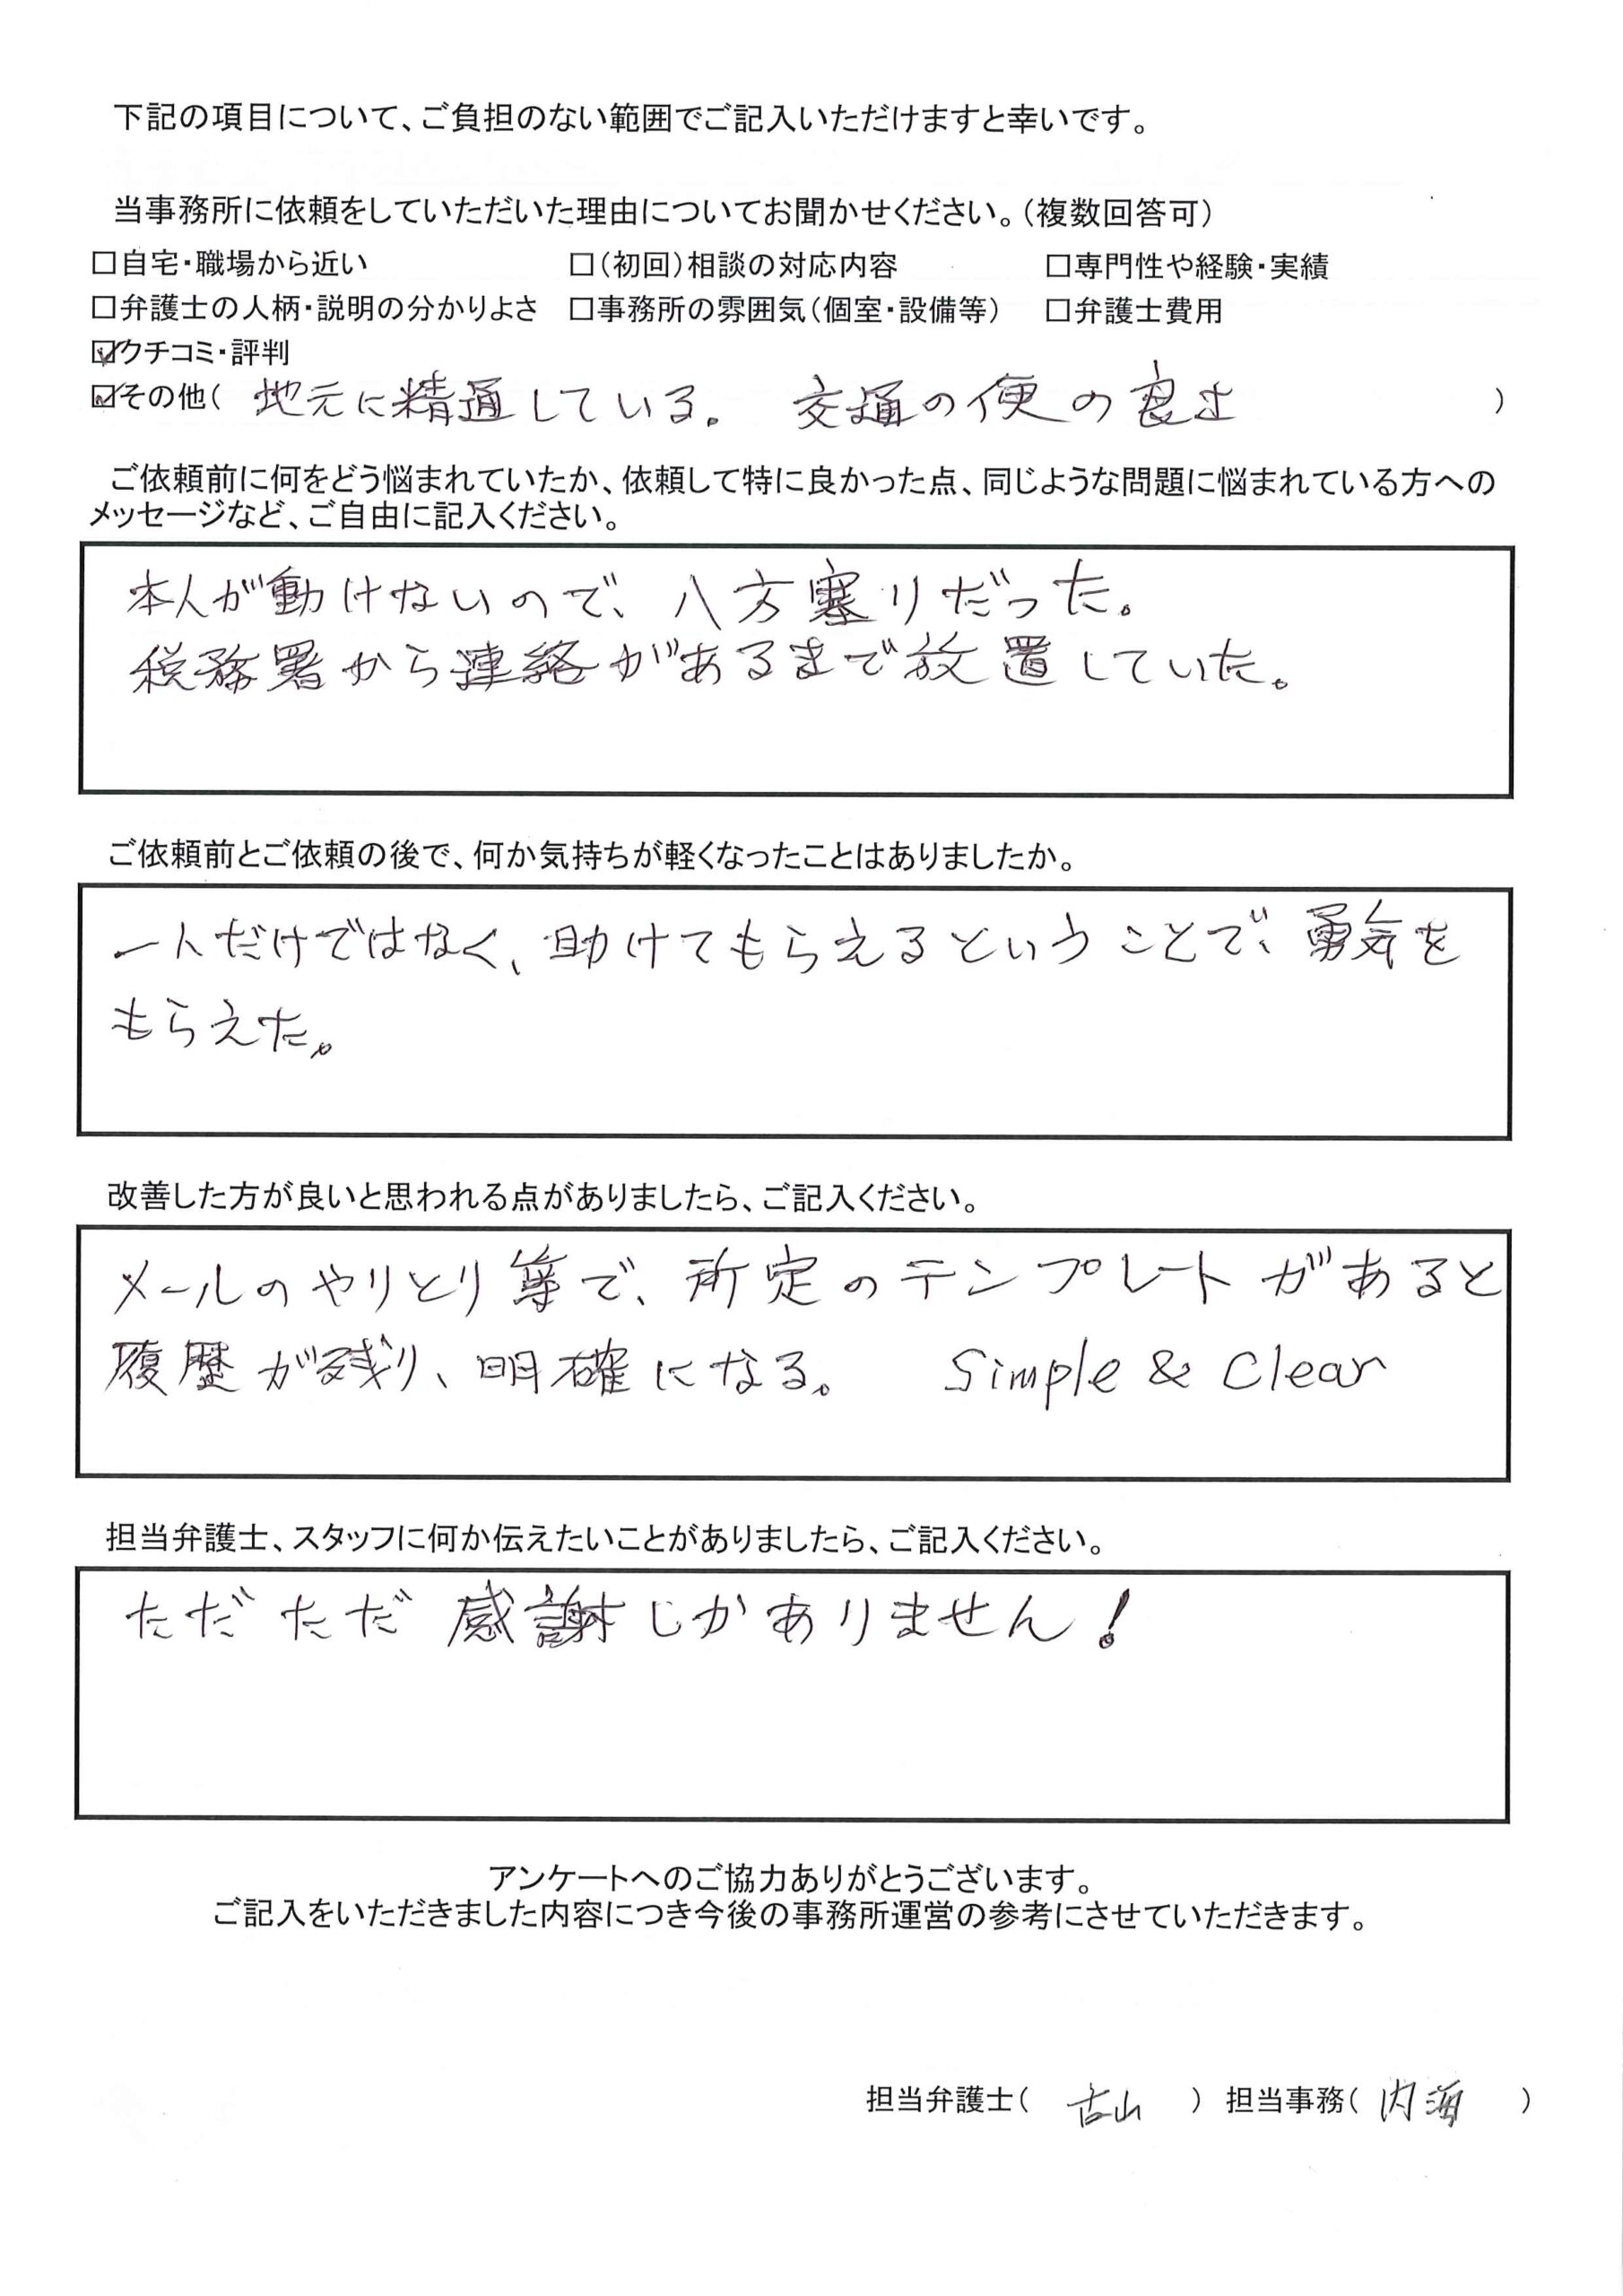 下記の項目について、ご負担のない範囲でご記入いただけますと幸いです。
当事務所に依頼をしていただいた理由についてお聞かせください。(複数回答可)
□自宅・職場から近い □(初回)相談の対応内容 □専門性や経験・実績
□弁護士の人柄・説明の分かりよさ □事務所の雰囲気(個室・設備等) □弁護士費用
☑クチコミ・評判
☑その他( 地元に精通している。 交通の便の良さ )
ご依頼前に何をどう悩まれていたか、依頼して特に良かった点、同じような問題に悩まれている方への
メッセージなど、ご自由に記入ください。
本人が動けないので、八方塞りだった。
税務署から連絡があるまで放置していた。
ご依頼前とご依頼の後で、何か気持ちが軽くなったことはありましたか。
一人だけではなく、助けてもらえるということで、勇気を
もらえた。
改善した方が良いと思われる点がありましたら、ご記入ください。
メールのやりとり等で、所定のテンプレートがあると
履歴が残り、明確になる。 Simple & Clear
担当弁護士、スタッフに何か伝えたいことがありましたら、ご記入ください。
ただただ 感謝しかありません!
アンケートへのご協力ありがとうございます。
ご記入をいただきました内容につき今後の事務所運営の参考にさせていただきます。
担当弁護士( 古山 ) 担当事務( 内海 )